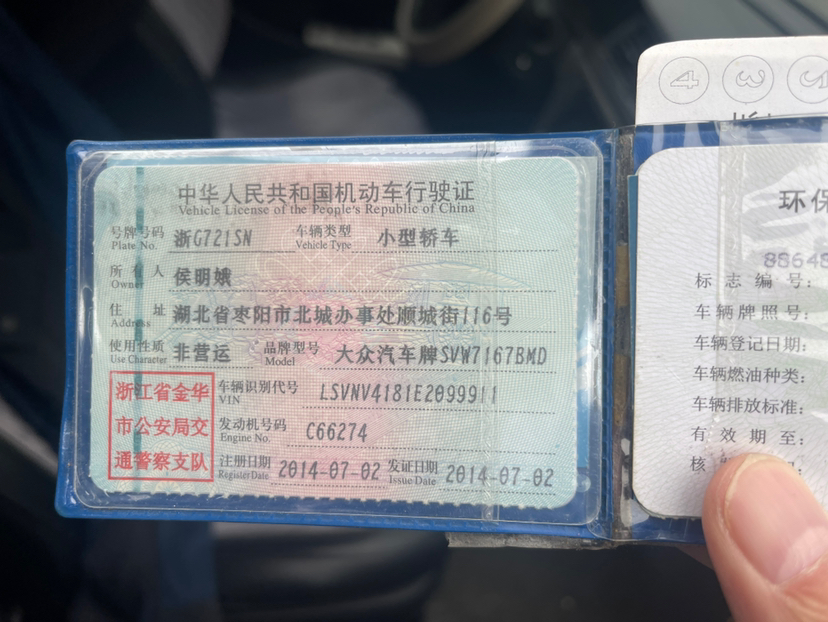 中华人民共和国机动车行驶证
Vehicle License of the People's Republic of China
号牌号码 浙G721SN 车辆类型 小型轿车
Plate No. Vehicle Type
所有人 侯明娥
Owner
住址 湖北省枣阳市北城办事处顺城街116号
Address
使用性质 非营运 品牌型号 大众汽车牌SVW7167BMD
Use Character Model
浙江省金华
市公安局交
通警察支队
车辆识别代号 LSVNV4181E2099911
VIN
发动机号码 C66274
Engine No.
注册日期 2014-07-02 发证日期 2014-07-02
Register Date Issue Date
4 3
环保
88648
标志编号:
车辆牌照号:
车辆登记日期:
车辆燃油种类:
车辆排放标准:
有效期至:
核